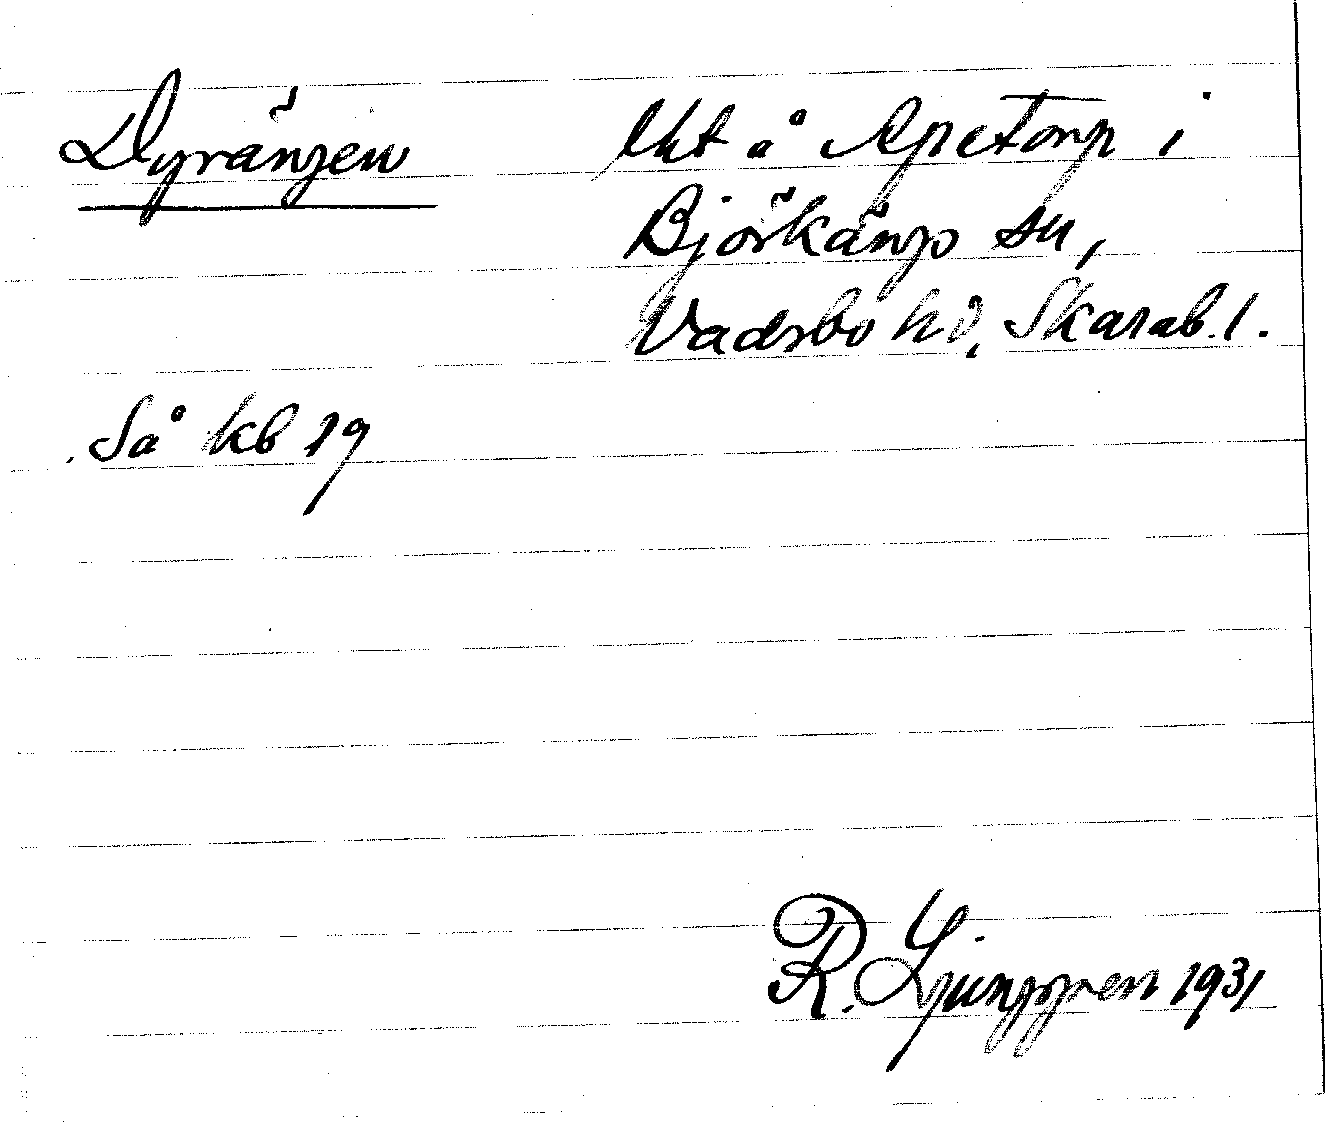 Dyrängen
lht å Apetorp i
Björkängs sn,
Vadsbo hd, Skarab. l.
Så kb 19
R. Ljunggren 1931